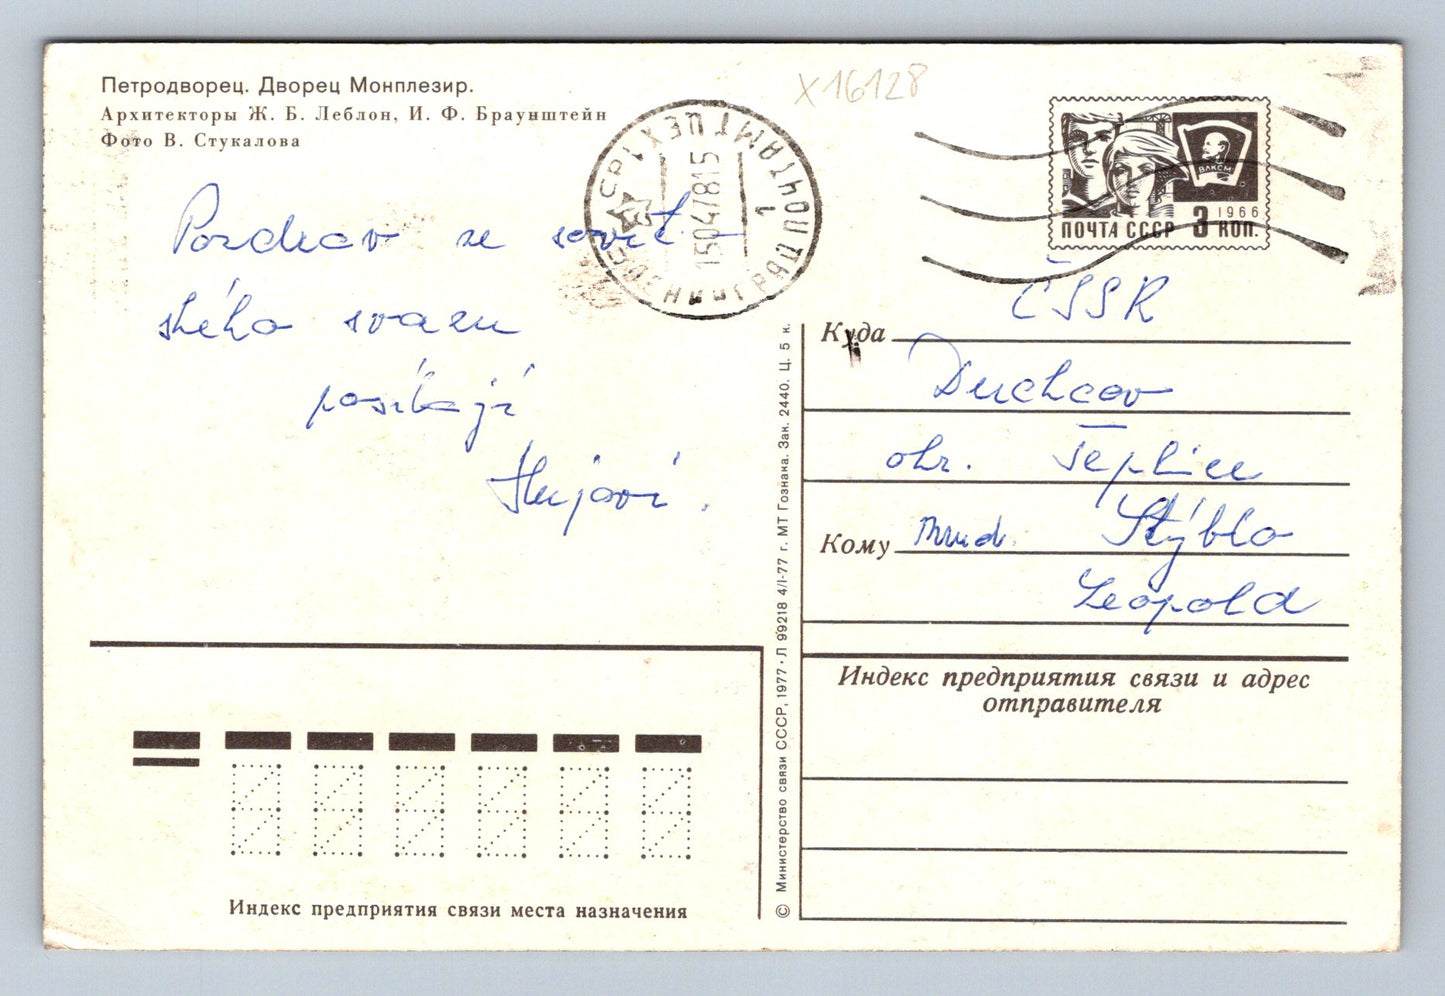 Петродворец. Дворец Монплезир.
Архитекторы Ж. Б. Леблон, И. Ф. Браунштейн
Фото В. Стукалова
X16128
ЛЕНИНГРАД ПОЧТАМТ ЦЕХ 1
1
СССР
15047815
ВЛКСМ
1966
ПОЧТА СССР 3 КОП.
Pozdrav ze sovět-
ského svazu
posílají
Куда ČSSR
Duchcov
okr. Teplice
Кому Mud. Stýblo
Leopold
Индекс предприятия связи и адрес
отправителя
© Министерство связи СССР, 1977 · Л 99218 4/I-77 г. МТ Гознака. Зак. 2440. Ц. 5 к.
Индекс предприятия связи места назначения